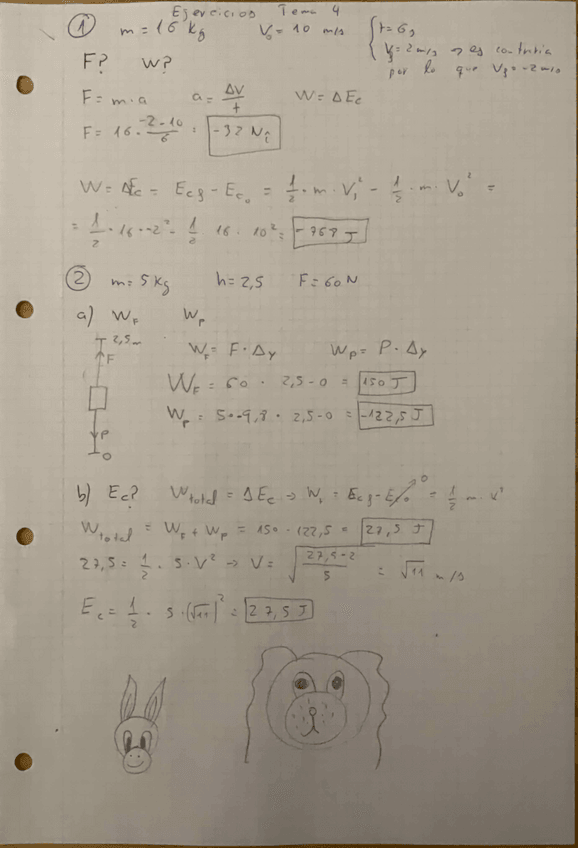 Ejercicios Tema 4
① m = 16 kg V₀ = 10 m/s { t = 6 s
V_f = 2 m/s → es contraria
por lo que V_f = -2 m/s
F? W?
F = m · a a = ΔV/t W = ΔEc
F = 16 · (-2-10)/6 = -32 N î
W = ΔEc = Ec_f - Ec₀ = 1/2 · m · V₁² - 1/2 · m · V₀² =
= 1/2 · 16 · -2² - 1/2 16 · 10² = -768 J
② m = 5 kg h = 2,5 F = 60 N
a) W_F W_P
2,5 m
F
P
0
W_F = F · Δy W_P = P · Δy
W_F = 60 · 2,5-0 = 150 J
W_P = 5 · -9,8 · 2,5-0 = -122,5 J
b) Ec? W_total = ΔEc → W_t = Ec_f - Ec₀ 0 = 1/2 m · v²
W_total = W_F + W_P = 150 - 122,5 = 27,5 J
27,5 = 1/2 · 5 · V² → V = √(27,5·2/5) = √11 m/s
Ec = 1/2 · 5 · (√11)² = 27,5 J